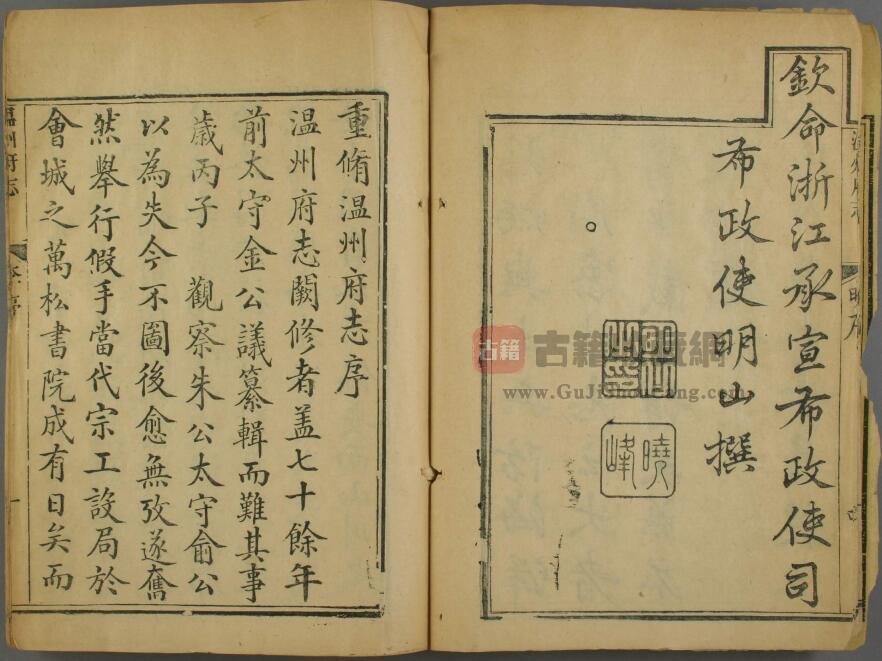 欽命浙江承宣布政使司
布政使明山撰
曉峰
重脩温州府志序
温州府志闕修者盖七十餘年
前太守金公議纂輯而難其事
歲丙子 觀察朱公太守俞公
以為失今不圖後愈無攷遂奮
然舉行假手當代宗工設局於
會城之萬松書院成有日矣而
温州府志
古籍
古籍收藏網
www.GuJiShouCang.com